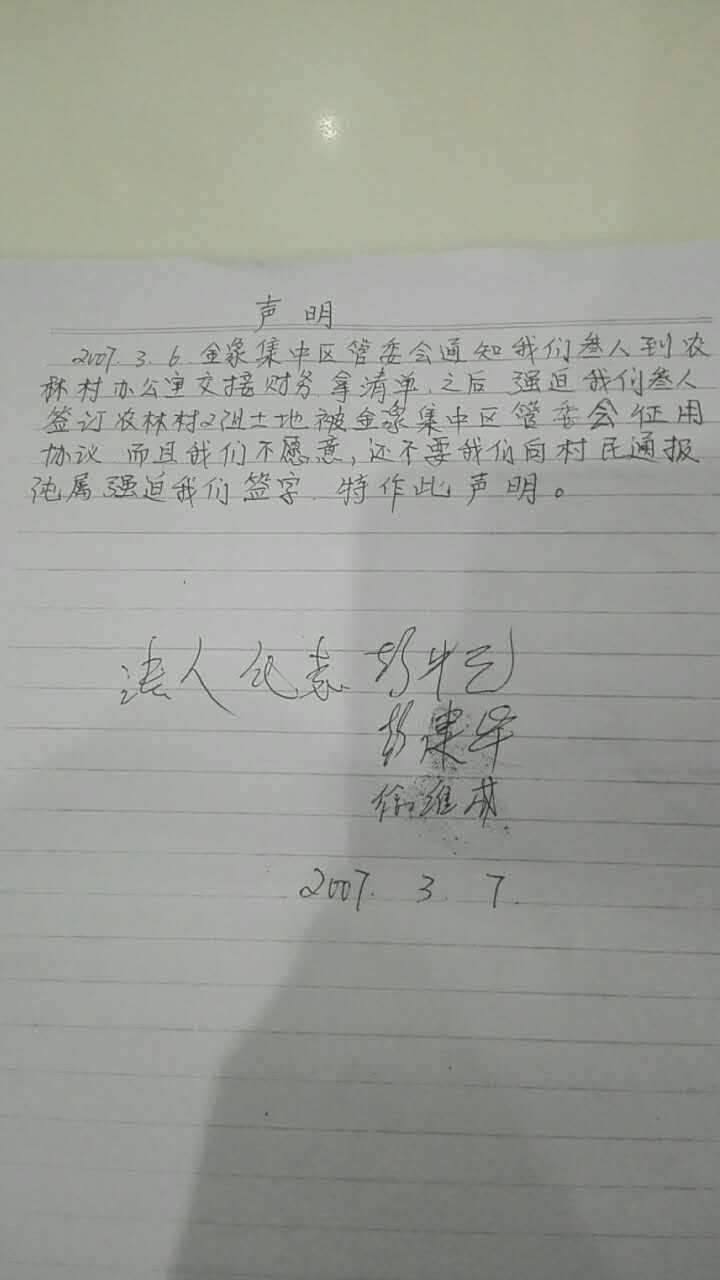 声明
2007.3.6.金象集中区管委会通知我们叁人到农
林村办公室交接财务拿清单.之后强迫我们叁人
签订农林村2组土地被金象集中区管委会征用
协议 而且我们不愿意,还不要我们向村民通报
纯属强迫我们签字.特作此声明。
法人代表 彭
彭建华
徐维
2007. 3. 7.